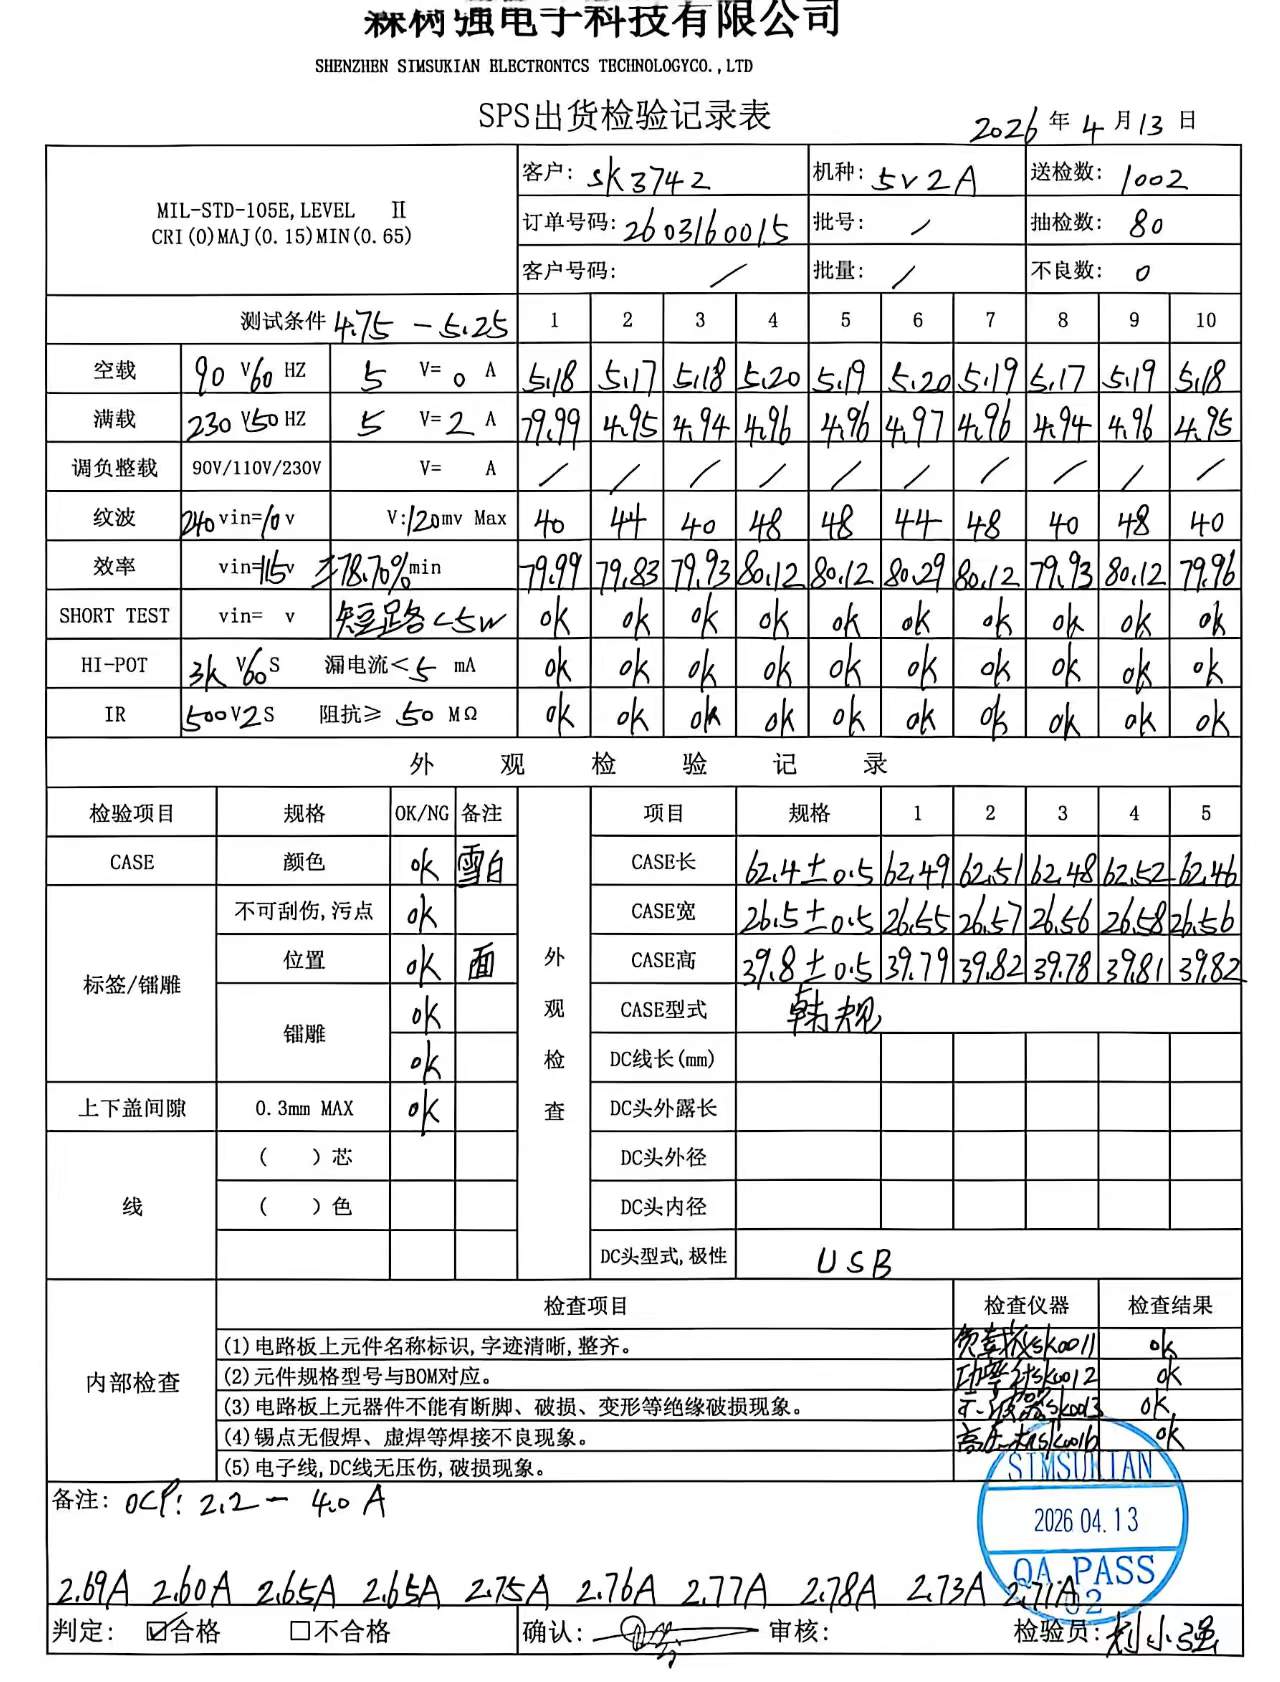 森树强电子科技有限公司
SHENZHEN SIMSUKIAN ELECTRONTCS TECHNOLOGYCO.,LTD
SPS出货检验记录表
2026 年 4 月 13 日
MIL-STD-105E,LEVEL Ⅱ
CRI(0)MAJ(0.15)MIN(0.65)
客户: SK3742 机种: 5V2A 送检数: 1002
订单号码: 2603160015 批号: / 抽检数: 80
客户号码: / 批量: / 不良数: 0
测试条件 4.75 - 5.25 1 2 3 4 5 6 7 8 9 10
空载 90 V 60 HZ 5 V= 0 A 5.18 5.17 5.18 5.20 5.19 5.20 5.19 5.17 5.19 5.18
满载 230 V 50 HZ 5 V= 2 A 79.99 4.95 4.94 4.96 4.96 4.97 4.96 4.94 4.96 4.95
调负整载 90V/110V/230V V= A / / / / / / / / / /
纹波 240 vin=10 v V:120mv Max 40 44 40 48 48 44 48 40 48 40
效率 vin=115v ≥78.70%min 79.99 79.83 79.93 80.12 80.12 80.29 80.12 79.93 80.12 79.96
SHORT TEST vin= v 短路<5W ok ok ok ok ok ok ok ok ok ok
HI-POT 3K V 60 S 漏电流< 5 mA ok ok ok ok ok ok ok ok ok ok
IR 500 V 2 S 阻抗≥ 50 MΩ ok ok ok ok ok ok ok ok ok ok
外 观 检 验 记 录
检验项目 规格 OK/NG 备注 项目 规格 1 2 3 4 5
CASE 颜色 ok 雪白 CASE长 62.4±0.5 62.49 62.51 62.48 62.52 62.46
不可刮伤,污点 ok CASE宽 26.5±0.5 26.55 26.57 26.56 26.58 26.56
标签/镭雕 位置 ok 面 外观检查 CASE高 39.8±0.5 39.79 39.82 39.78 39.81 39.82
镭雕 ok CASE型式 韩规
ok DC线长(mm)
上下盖间隙 0.3mm MAX ok DC头外露长
线 ( )芯 DC头外径
( )色 DC头内径
DC头型式,极性 USB
内部检查 检查项目 检查仪器 检查结果
(1)电路板上元件名称标识,字迹清晰,整齐。 负载仪SK0011 ok
(2)元件规格型号与BOM对应。 功率计SK0012 ok
(3)电路板上元器件不能有断脚、破损、变形等绝缘破损现象。 示波器SK0013 ok
(4)锡点无假焊、虚焊等焊接不良现象。 SK0016 ok
(5)电子线,DC线无压伤,破损现象。
SIMSUKIAN
2026 04.13
QA PASS
02
备注: OCP: 2.2 - 4.0 A
2.69A 2.60A 2.65A 2.65A 2.75A 2.76A 2.77A 2.78A 2.73A 2.71A
判定: ☑合格 □不合格 确认: 审核: 检验员: 刘小强